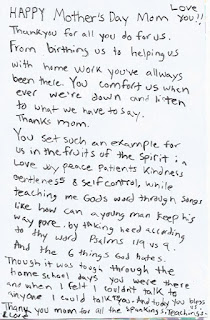 Love
HAPPY Mother's Day Mom you!!
Thankyou for all you do for us.
From birthing us to helping us
with home work you've allways
been there. You comfort us when
ever we're down and listen
to what we have to say.
Thanks mom.
You set such an example for
us in the fruits of the Spirit in
Love Joy peace Patients Kindness
Gentleness & Self control, while
teaching me Gods word through songs
like how can a young man keep his
way pure, by taking heed according
to thy word Psalms 119 vs 9.
And the 6 things God hates.
Though it was tough through the
home school days you were there
and when I felt I couldn't talk to
anyone I could talk you. And today you
Thank you mom for all the Spankings, Teachings
& Love